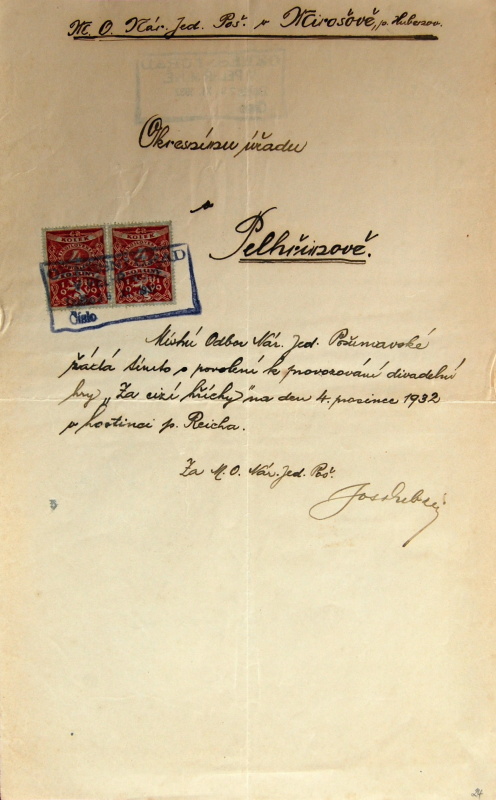 M. O. Nár. Jed. Poš. v Mirošově, p. Hubenov.
Okresnímu úřadu
v
Pelhřimově.
KOLEK
KOLEK
4
4
KORUNY
KORUNY
Číslo
Místní Odbor Nár. Jed. Pošumavské
žádá tímto o povolení k provozování divadelní
hry „Za cizí hříchy" na den 4. prosince 1932
v hostinci p. Reicha.
Za M. O. Nár. Jed. Poš.